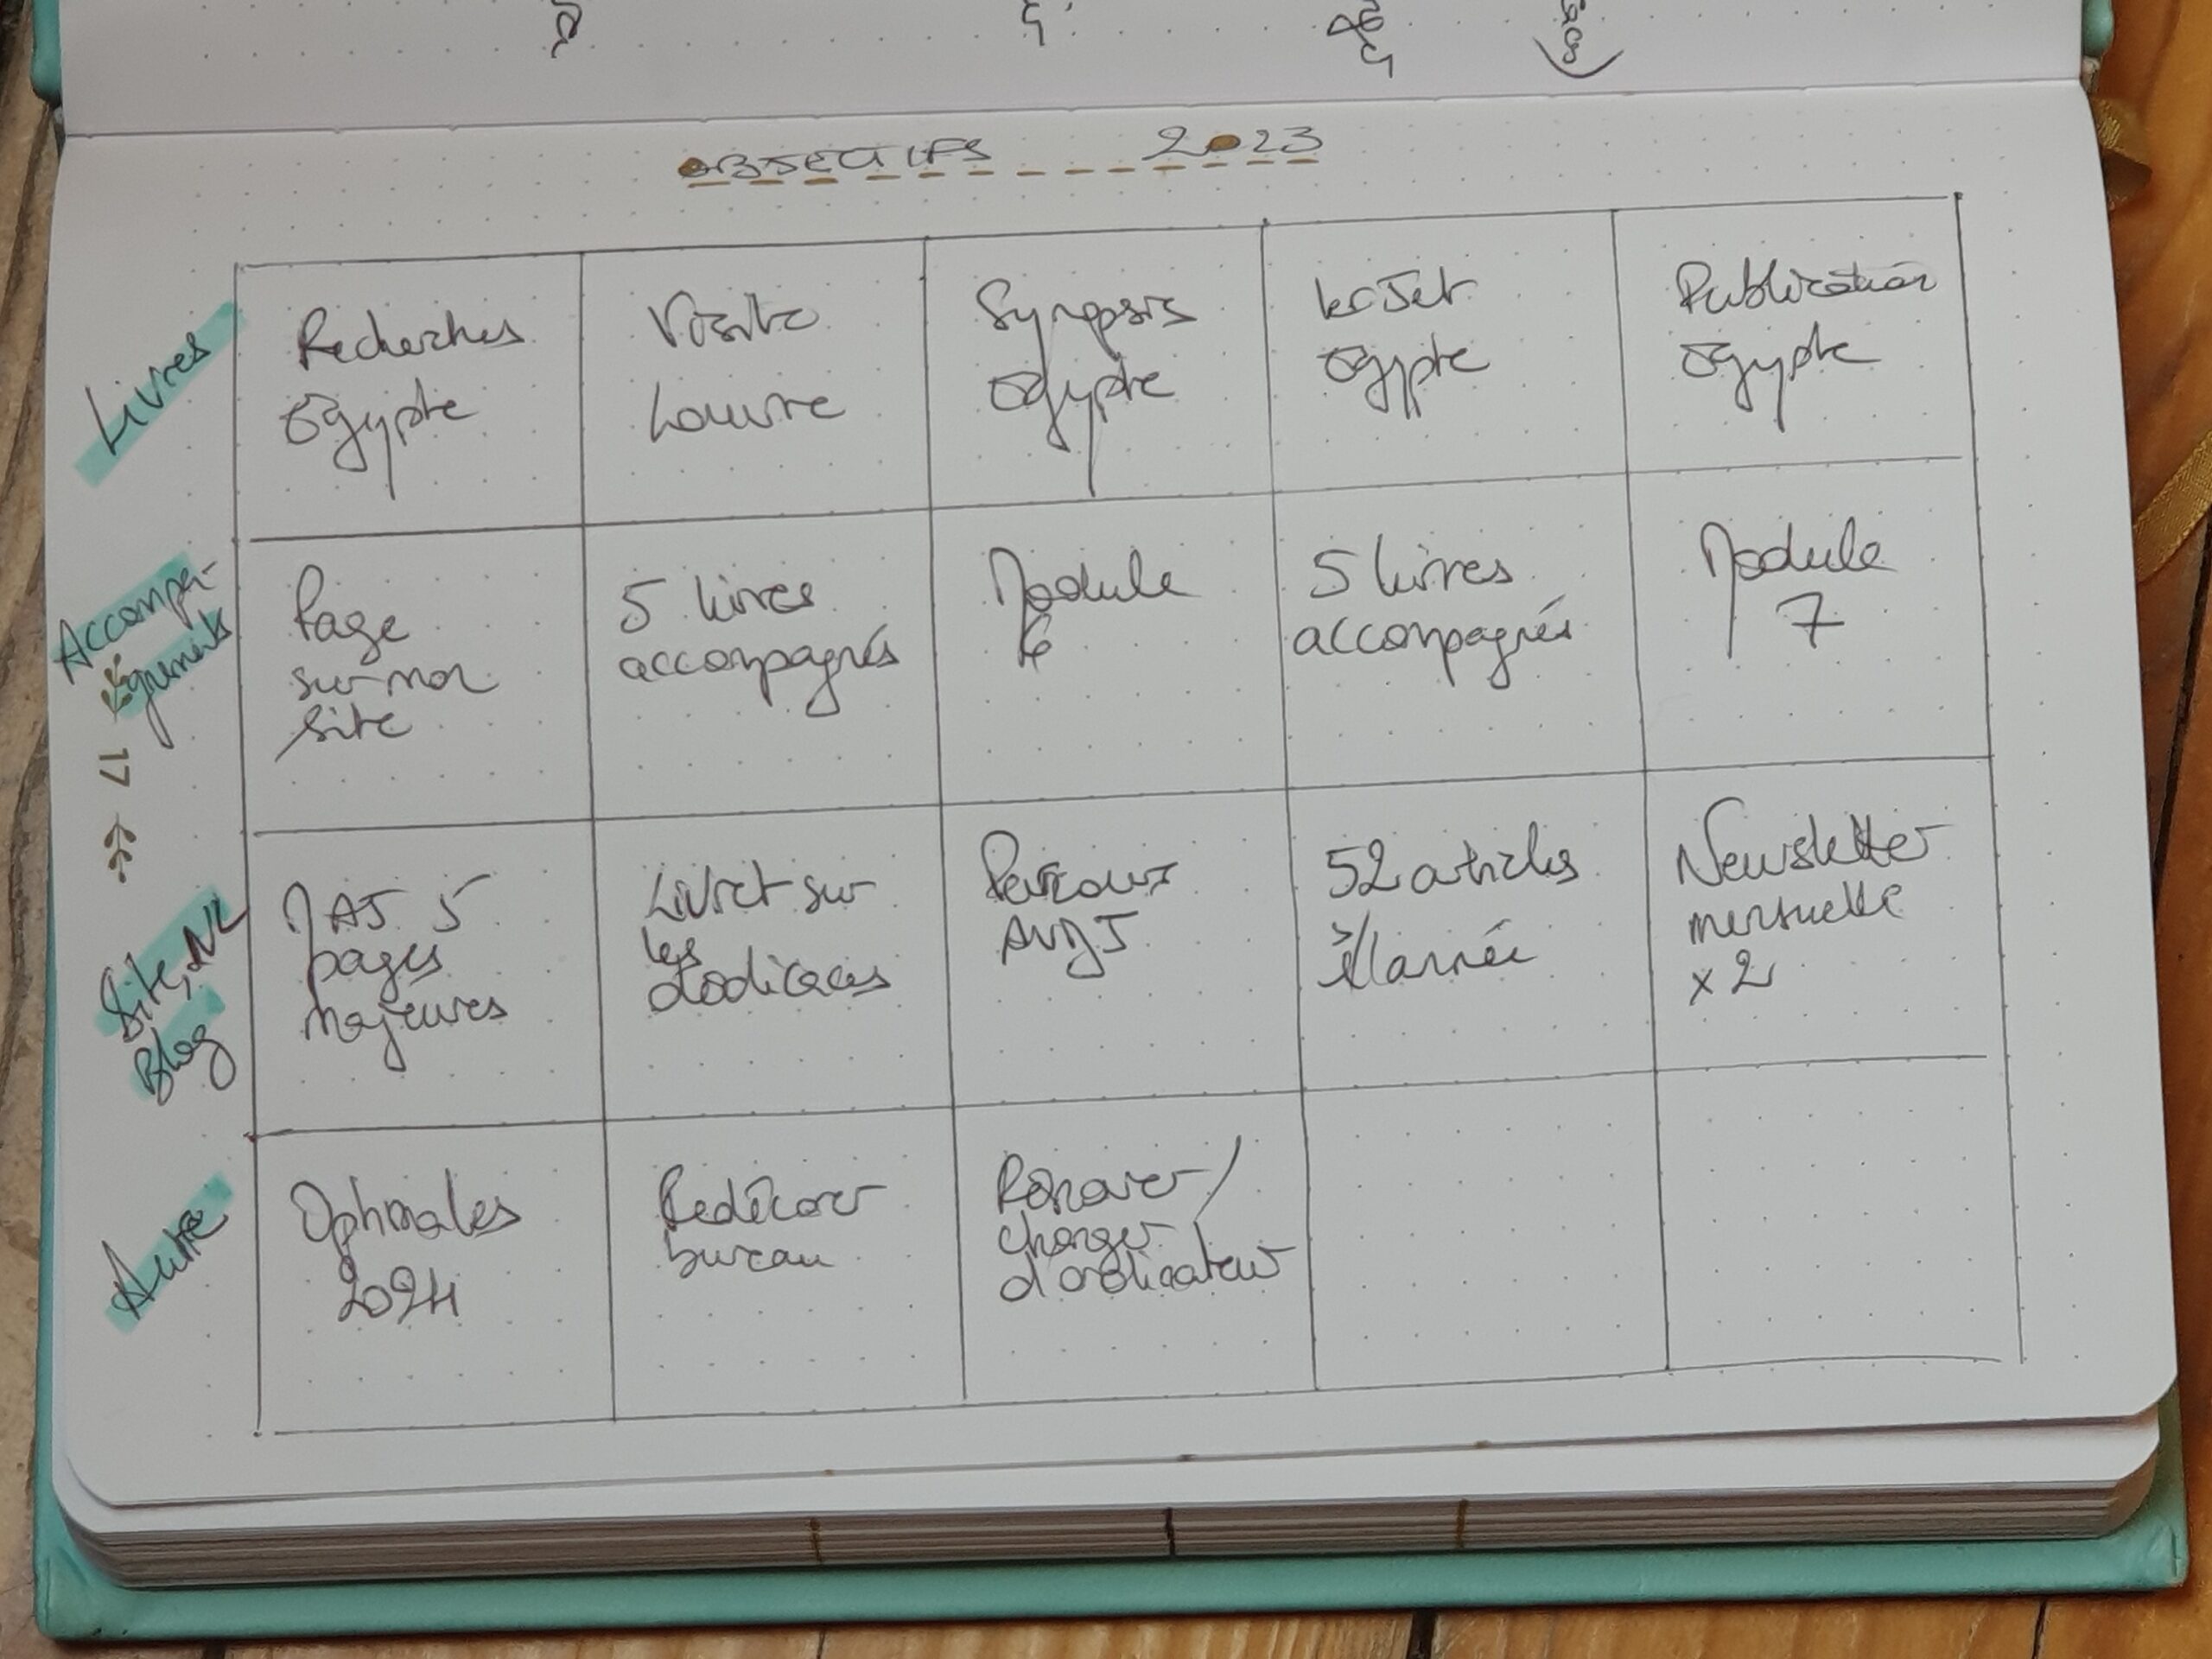 OBJECTIFS 2023
Livres
Recherches
Egypte
Visite
Louvre
Synopsis
Egypte
1er Jet
Egypte
Publication
Egypte
Accompa-
gnements
Page
sur mon
site
5 livres
accompagnés
Module
6
5 livres
accompagnés
Module
7
17
Site, NL
Blog
MAJ 5
pages
majeures
Livret sur
les
dédicaces
Parcours
52 articles
l'année
Newsletter
mensuelle
x 2
Autre
2024
Redécorer
bureau
Rénover /
changer
d'ordinateur